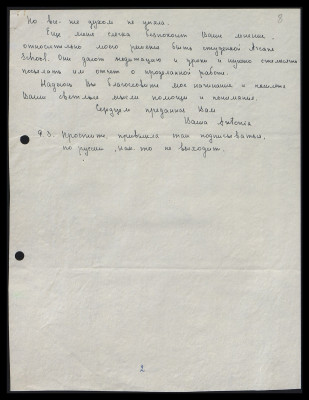 8
Но вы-же духом не упали.
Еще меня слегка беспокоит Ваше мнение,
относительно моего решения быть студенткой Arcane
School. Они дают медитацию и уроки и нужно ежемесячно
посылать им отчет о проделанной работе.
Надеюсь Вы благословите мое начинание и пошлете
Ваши светлые мысли помощи и понимания.
Сердцем преданная Вам
Ваша
P.S. Простите, привыкла так подписываться,
по русски, как-то не выходит.
2